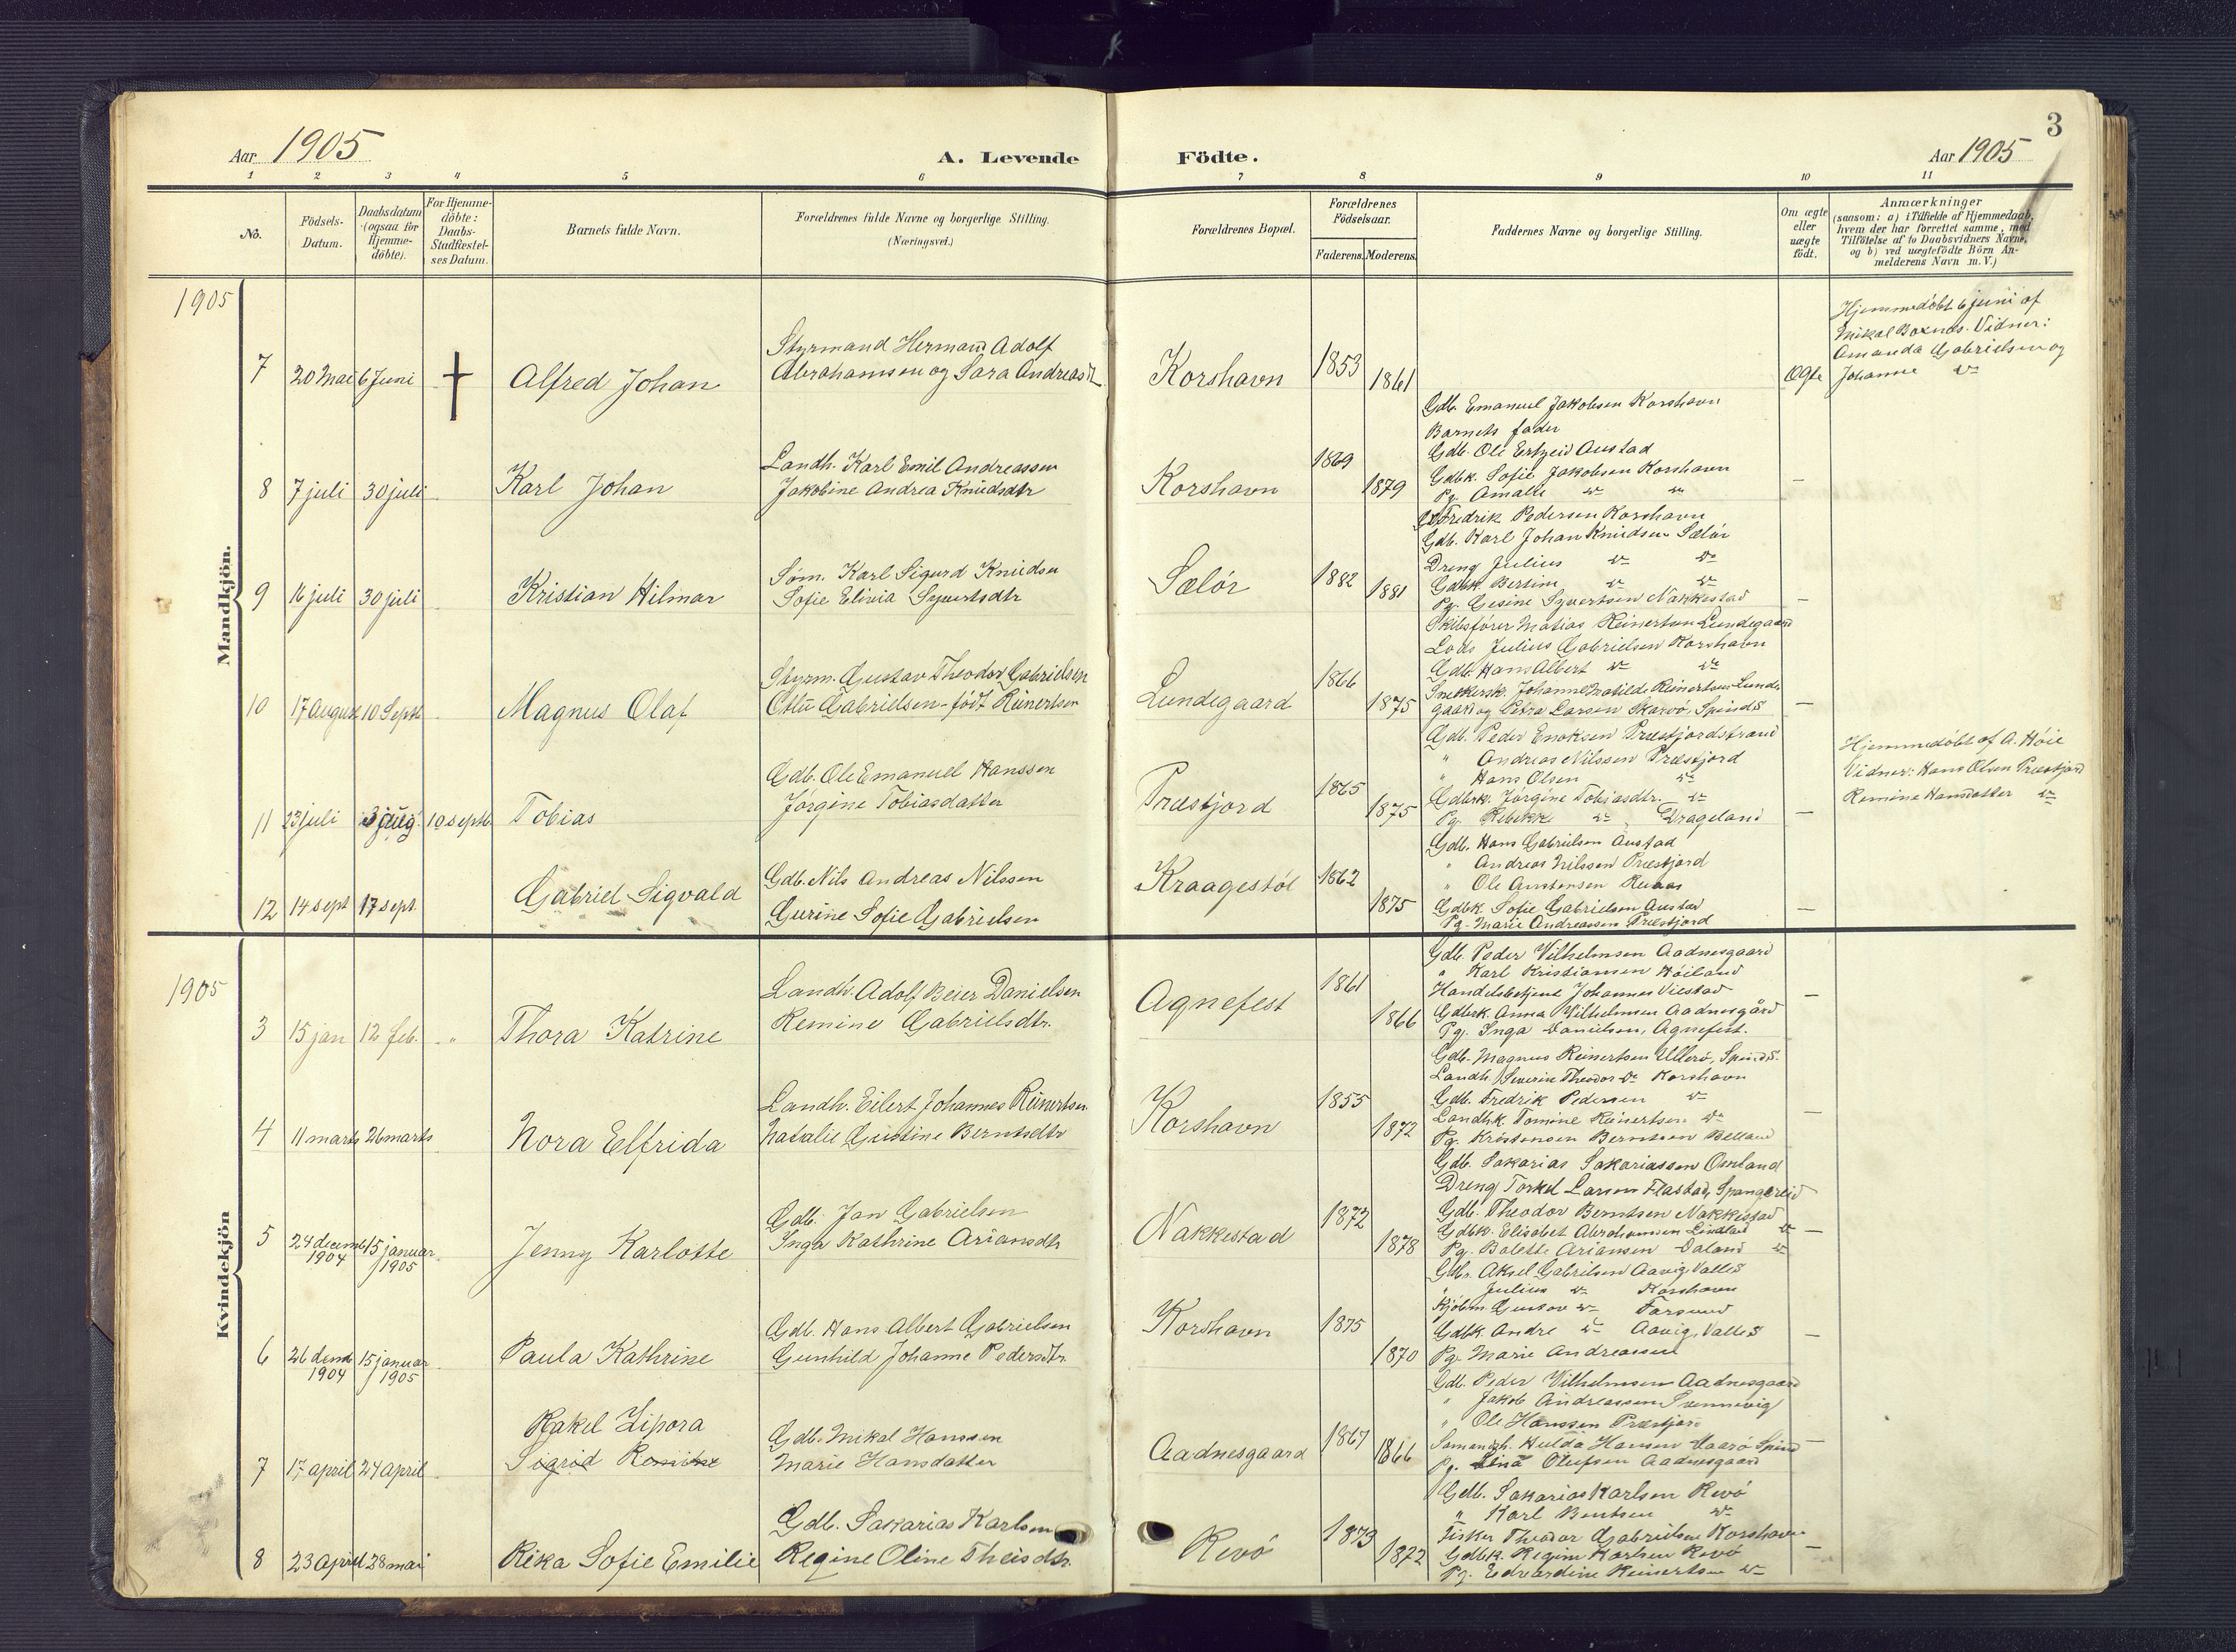 3
Aar 1905
A. Levende Födte.
Aar 1905
1 2 3 4 5 6 7 8 9 10 11
No.
Födsels-Datum.
Daabsdatum (ogsaa for Hjemme-döbte).
For Hjemme-döbte: Daabs-Stadfæstel-ses Datum.
Barnets fulde Navn.
Forældrenes fulde Navne og borgerlige Stilling.
(Næringsvei.)
Forældrenes Bopæl.
Forældrenes Födselsaar.
Faderens. Moderens.
Faddernes Navne og borgerlige Stilling.
Om ægte eller uægte födt.
Anmærkninger
(saasom: a) i Tilfælde af Hjemmedaab,
hvem der har forrettet samme, med
Tilföielse af to Daabsvidners Navne,
og b) ved uægtefödte Börn An-
melderens Navn m. V.)
Mandkjön.
1905
7 20 Mai 6 Juni † Alfred Johan
Styrmand Hermann Adolf
Abrahamsen og Sara Andreasd.
Korshavn 1853 1861
Ægte
Hjemmedöbt 6 juni af
Mikal Boxnes. Vidner:
Amanda Gabrielsen og
Johanne do
8 7 juli 30 juli Karl Johan
Landh. Karl Emil Andreassen
Jakobine Andrea Knudsdtr
Korshavn 1869 1879
Gdb. Emanuel Jakobsen Korshavn
Barnets fader
Gdb. Ole Ertzeid Austad
Gdbk. Sofie Jakobsen Korshavn
Pg. Amalie do do
—
9 16 juli 30 juli Kristian Hilmar
Søm. Karl Sigurd Knudsen
Sofie Elivia Syvertsdtr
Sælör 1882 1881
Fredrik Pedersen Korshavn
Gdb. Karl Johan Knudsen Sælör
Dreng Julius do do
Gdbk. Bertine do do
Pg. Gesine Syvertsen Nakkestad
—
10 17 august 10 Septb Magnus Olaf
Styrm. Gustav Theodor Gabrielsen
Gabrielsen - født Reinertsen
Lundegaard 1866 1875
Skibsfører Matias Reinertsen Lundegaard
Lods Julius Gabrielsen Korshavn
Gdb. Hans Albert do do
Snekkersk. Johanne Matilde Reinertsen Lunde
gaard og Petra Larsen Skarvö, Spinds
—
11 23 juli 3 aug. 10 septb. Tobias
Gdb. Ole Emanuel Hanssen
Jörgine Tobiasdatter
Præstjord 1865 1875
Gdb. Peder Enoksen Præstjordstrand
" Andreas Nilssen Præstjord
" Hans Olsen do
Gdbrk. Jörgine Tobiasdtr. do
Pg. Rebekke do Drageland
—
Hjemmedöbt af A. Höie
Vidner: Hans Olsen Præstjord
Remine Hansdatter do
12 14 sept 17 sept. Gabriel Sigvald
Gdb. Nils Andreas Nilssen
Gurine Sofie Gabrielsen
Kraagestöl 1862 1875
Gdb. Hans Gabrielsen Austad
" Andreas Nilssen Præstjord
" Ole Aanensen
Gdbk Sofie Gabrielsen Austad
Pg. Marie Andreassen Præstjord
—
Kvindekjön
1905
3 15 jan 12 feb. " Thora Katrine
Landh. Adolf Beier Danielsen
Remine Gabrielsdtr.
Agnefest 1861 1866
Gdb. Peder Vilhelmsen Aadnesgaard
" Karl Kristiansen Höiland
Handelsbetjent Johannes Viestad
Gdbrk. Anna Vilhelmsen Aadnesgård
Pg. Inga Danielsen, Agnefest.
—
4 11 marts 26 marts Nora Elfrida
Landh. Eilert Johannes Reinertsen
Natalie Gustine Berntsdtr
Korshavn 1855 1872
Gdb. Magnus Reinertsen Ullerö, Spinds.
Landh. Severin Theodor do Korshavn
Gdb. Fredrik Pedersen do
Landhk. Tomine Reinertsen do
Pg. Berntsen
—
5 24 decemb 1904 15 januar 1905 Jenny Karlotte
Gdb. Jan Gabrielsen
Inga Kathrine Ariansdtr
Nakkestad 1872 1878
Gdb. Sakarias Sakariassen Omland
Dreng Torkel Larsen Flastad, Spangereid
Gdb. Theodor Berntsen Nakkestad
Gdbk. Elisabet Abrahamsen Lindland do
Pg. Bolette Ariansen Daland do
—
6 26 decmb 1904 15 januar 1905 Paula Kathrine
Gdb. Hans Albert Gabrielsen
Gunhild Johanne Pedersdtr.
Korshavn 1875 1870
Gdbr. Aksel Gabrilsen Aavig, Valles
" Julius do Korshavn
Kjöbm. Gustav do Farsund
Gdbk. Andre do Aavig, Valles
Pg. Marie Andreassen
—
7 17 april 24 april Rakel Zipora
Sigrid Remine
Gdb. Mikal Hanssen
Marie Hansdatter
Aadnesgaard 1867 1866
Gdb. Peder Vilhelmsen Aadnesgaard
" Jakob Andreassen Svennevig
" Ole Hanssen Præstjord
Sømandsh. Hulda Hansen Spind
Pg. Lina Olufsen Aadnesgaard
—
8 23 April 28 mai Rika Sofie Emilie
Gdb. Sakarias Karlsen
Regine Oline Theisdtr.
Revö 1873 1872
Gdb. Sakarias Karlsen Revö
" Karl Berntsen do
Fisker Theodor Gabrielsen Korshavn
Gdbk. Regine Karlsen Revö
Pg. Edvardine Reinertsen do
—